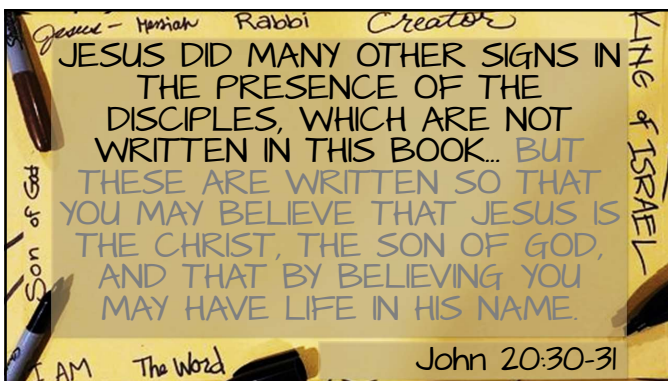 Jesus - Messiah Rabbi Creator
KING of ISRAEL
JESUS DID MANY OTHER SIGNS IN
THE PRESENCE OF THE
DISCIPLES, WHICH ARE NOT
WRITTEN IN THIS BOOK... BUT
THESE ARE WRITTEN SO THAT
YOU MAY BELIEVE THAT JESUS IS
THE CHRIST, THE SON OF GOD,
AND THAT BY BELIEVING YOU
MAY HAVE LIFE IN HIS NAME.
Son of God
I AM The Word
John 20:30-31